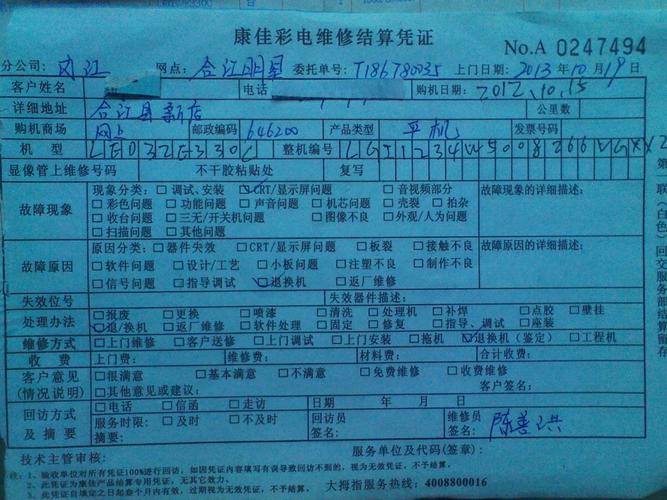 康佳彩电维修结算凭证
No.A 0247494
分公司: 内江 网点: 合江明星 委托单号: T186780035 上门日期: 2013年10月19日
客户姓名 电话 购机日期: 2012.10.15
详细地址 合江县新店 公里数
购机商场 网上 邮政编码 646200 产品类型 平机 发票号码
机型 LED32E330C 整机编号
显像管上维修号码 不干胶粘贴处 复写
故障现象 现象分类: □调试、安装 ☑CRT/显示屏问题 □音视频部分 故障现象的详细描述:
□彩色问题 □功能问题 □声音问题 □机芯问题 □壳裂 □拍杂
□收台问题 □三无/开关机问题 □图像不良 □外观/人为问题
□扫描问题 □其他问题
故障原因 原因分类: □器件失效 □CRT/显示屏问题 □板裂 □接触不良 故障原因的详细描述:
□软件问题 □设计/工艺 □小板问题 □注塑不良 □制作不良
□信号问题 □指导调试 ☑退换机 □返厂维修
失效位号 失效器件描述:
处理办法 □报废 □更换 □喷漆 □清洗 □处理机 □补焊 □点胶 □壁挂
☑退/换机 □返厂维修 □软件处理 □固定 □修复 □指导、调试 □座装
维修方式 □上门维修 □客户送修 □上门调试 □上门安装 □拖机 ☑退换机(鉴定) □工程机
收费 上门费: 维修费: 材料费: 合计收费:
客户意见 □很满意 □基本满意 □不满意 □免费维修 □收费维修
(情况说明) □其他意见或建议: 客户签名:
回访方式 □电话 □信函 □走访 日期 年 月 日
及摘要 服务时限: □及时 □不及时 回访员签名: 维修员签名: 陈善洪
摘要:
技术主管审核: 服务单位及代码(签章):
注: 1、验收单位对所有凭证100%进行回访, 如因凭证内容填写有误导致回访不到的, 视为无效凭证, 不予结算.
2、此凭证为康佳产品结算专用凭证, 无其它效力.
3、此凭证自填定之日起叁个月内有效, 过期视为无效凭证, 不予结算. 大拇指服务热线: 4008800016
联(白色)回交服务部结算留存